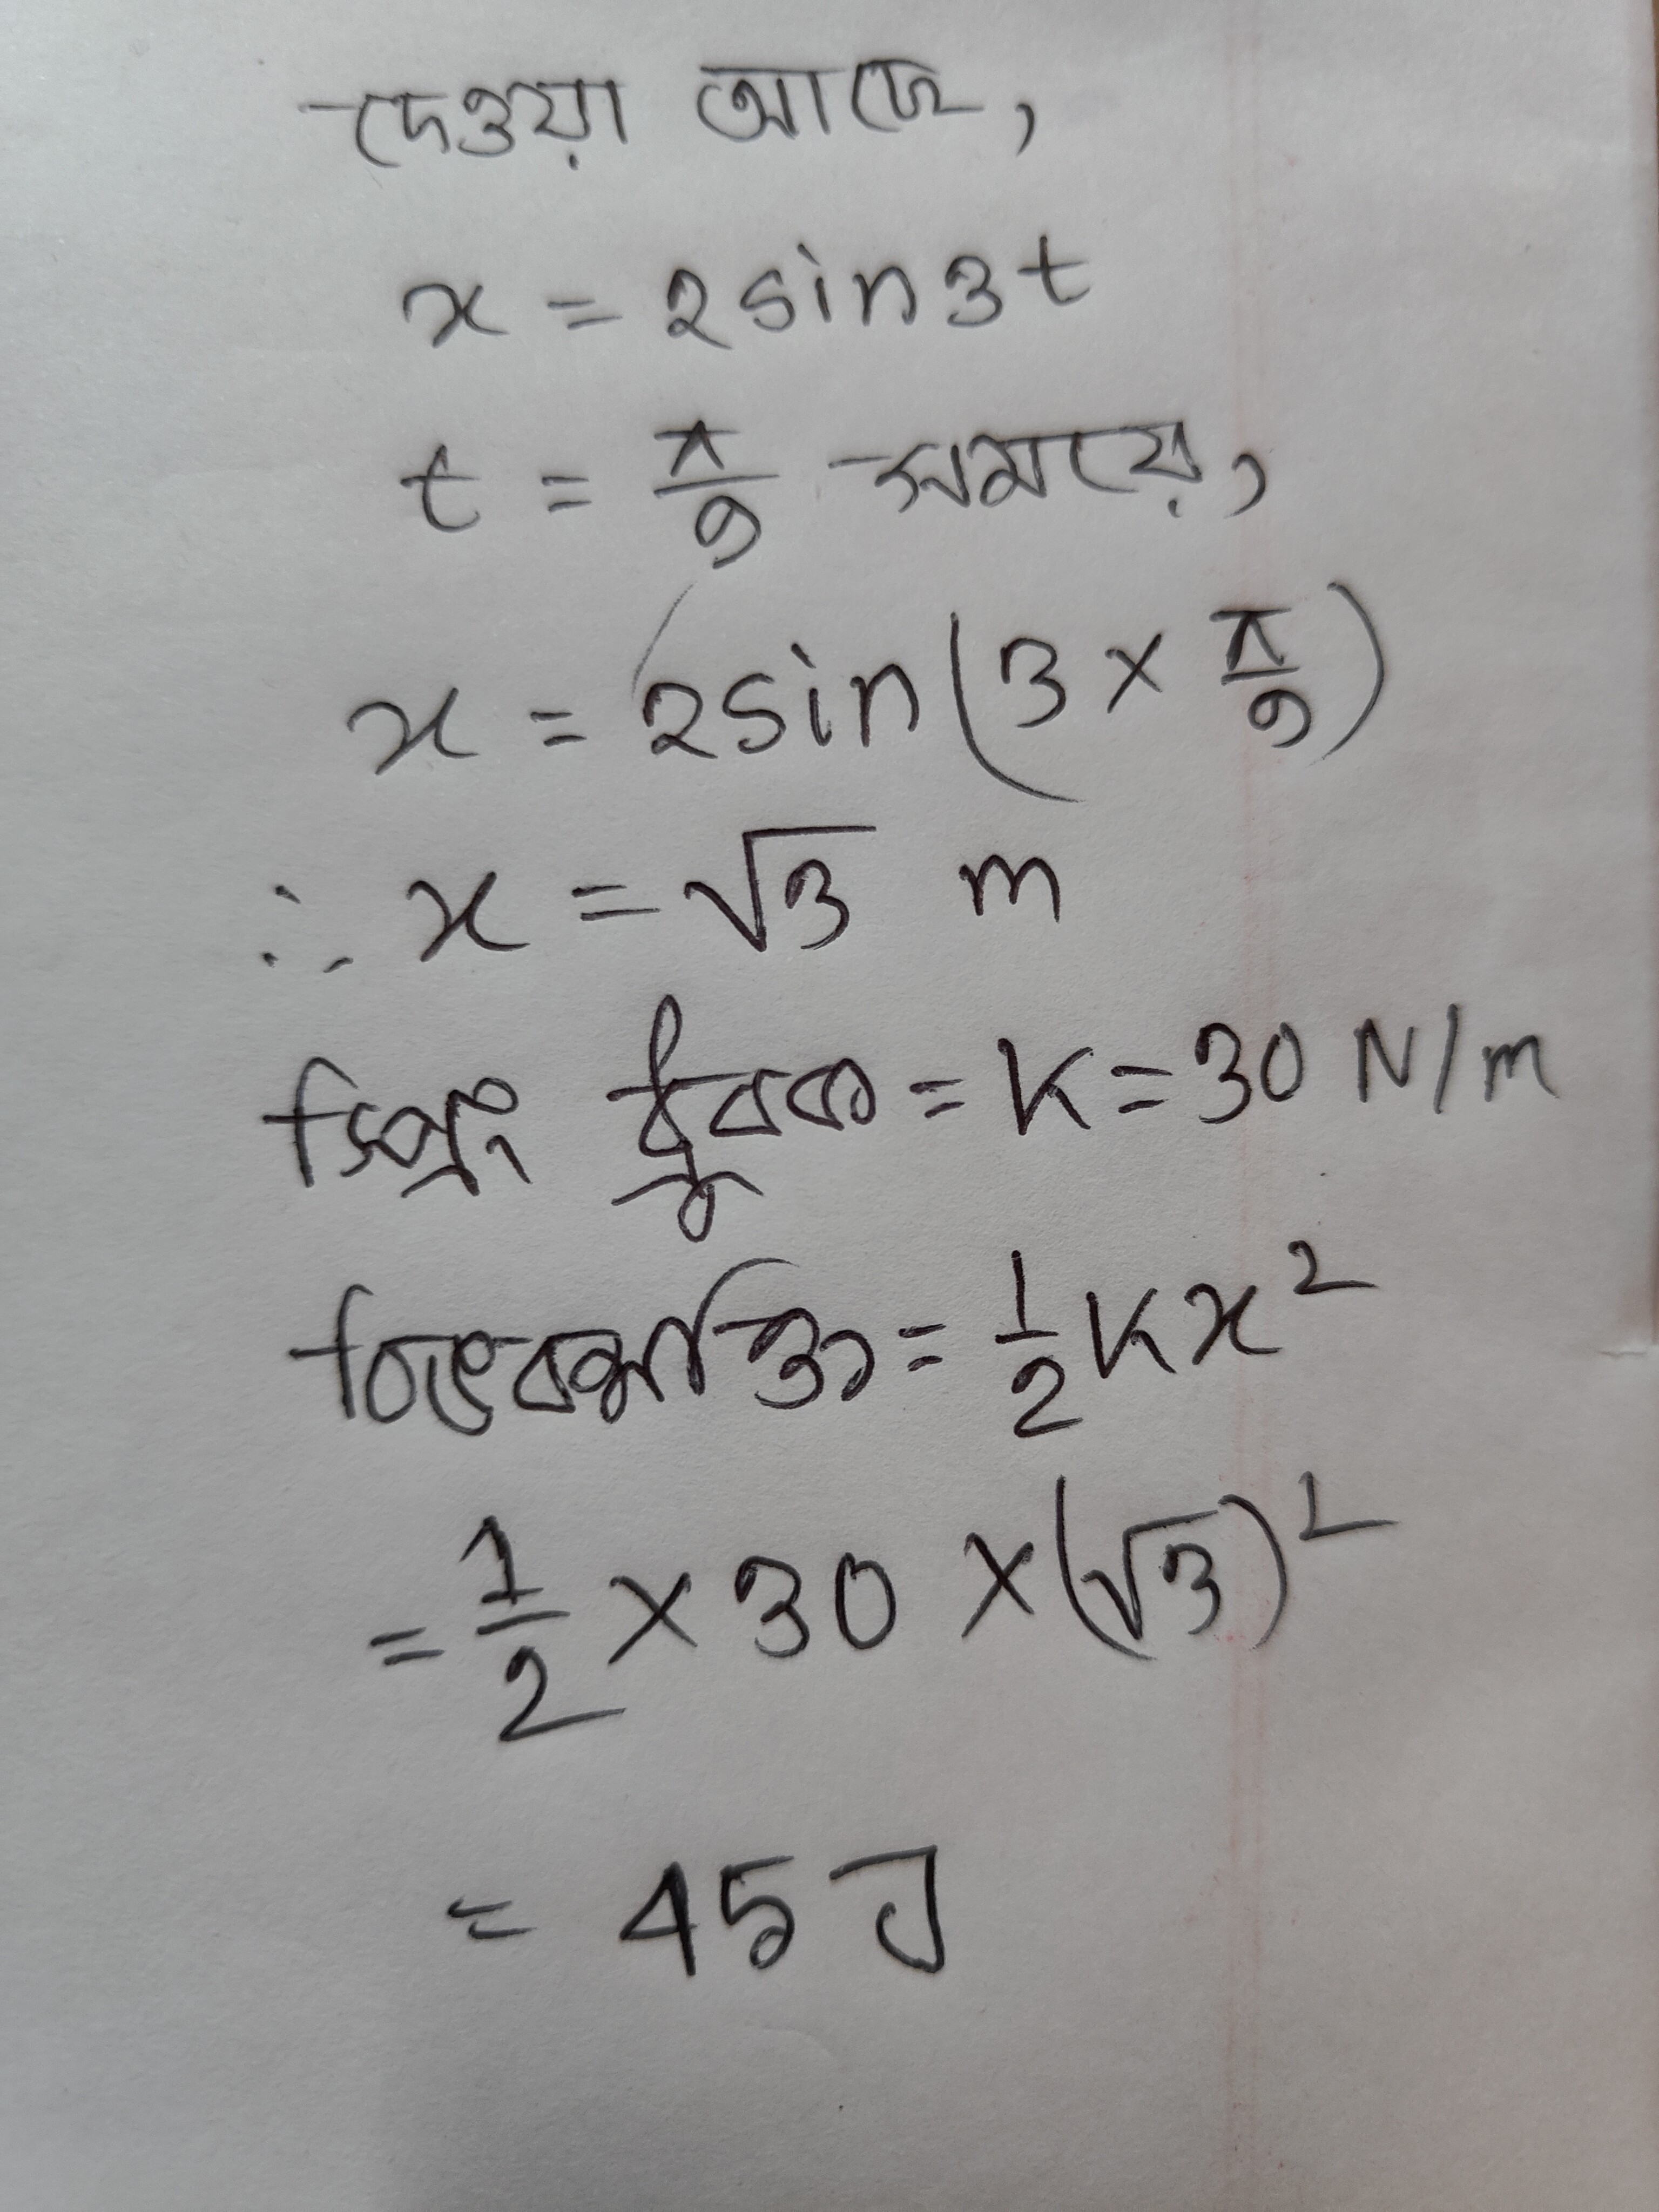 দেওয়া আছে,
x = 2sin3t
t = π/9 সময়ে,
x = 2sin(3 × π/9)
∴ x = √3 m
স্প্রিং ধ্রুবক = K = 30 N/m
বিভবশক্তি = 1/2 Kx²
= 1/2 × 30 × (√3)²
= 45 J